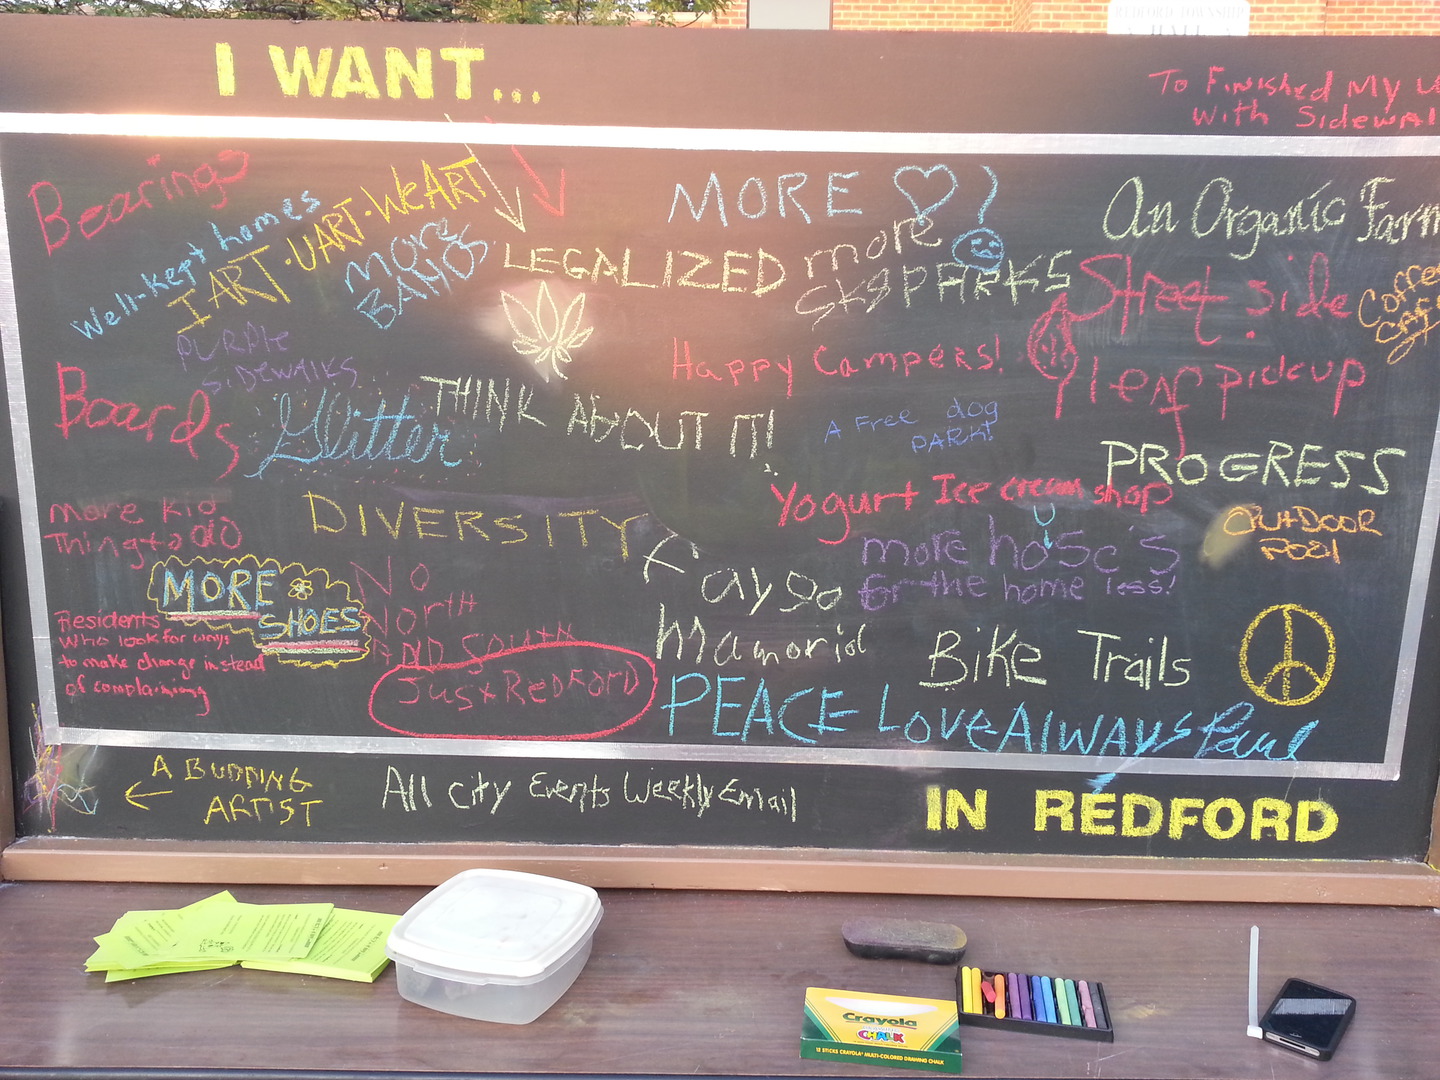 REDFORD TOWNSHIP
HALL
I WANT...
To Finished My
With Sidewal
Bearings
Well-kept homes
I ART·UART·WeART
More
BANDS
MORE
LEGALIZED
more
SK8PARKS
An Organic Farm
Street side
leaf pickup
Coffee
cafe
PURPLE
SIDEWALKS
Happy Campers!
Boards
Glitter
THINK ABOUT IT!
A Free dog
PARK!
PROGRESS
Yogurt Ice cream shop
More kid
Thing to do
DIVERSITY
OUtDOOR
POOl
more hose's
for the home less!
MORE
SHOES
No
North
AND South
Just REDFORD
Faygo
Mamorial
Residents
who look for ways
to make change instead
of complaining
Bike Trails
PEACE LOVE AlWAYS Paul
A BUDDING
ARTIST
All City Events Weekly Email
IN REDFORD
Crayola
CHALK
12 STICKS CRAYOLA MULTI-COLORED DRAWING CHALK